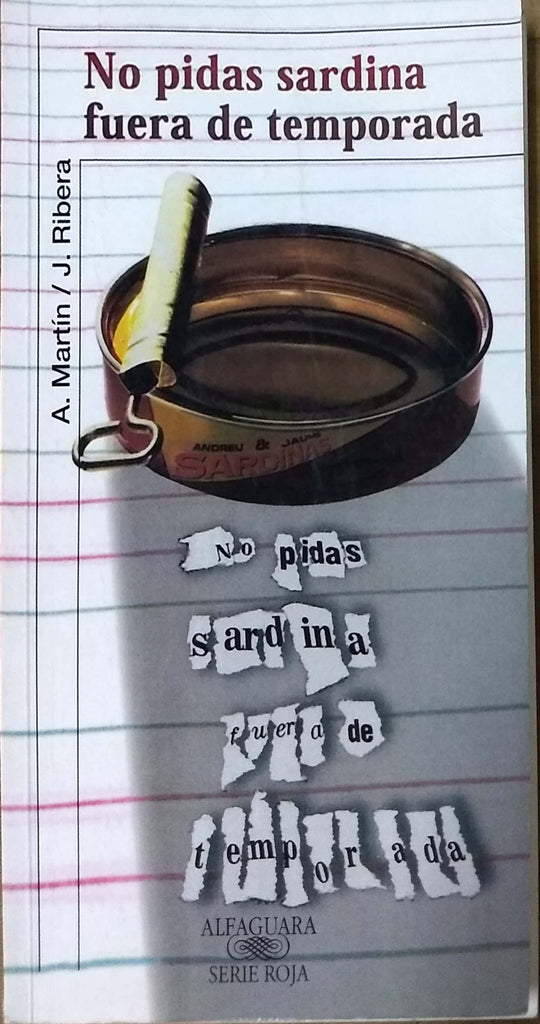 No pidas sardina
fuera de temporada
A. Martín / J. Ribera
ANDREU & JAUME
SARDINAS
No pidas
sardina
fuera de
temporada
ALFAGUARA
SERIE ROJA